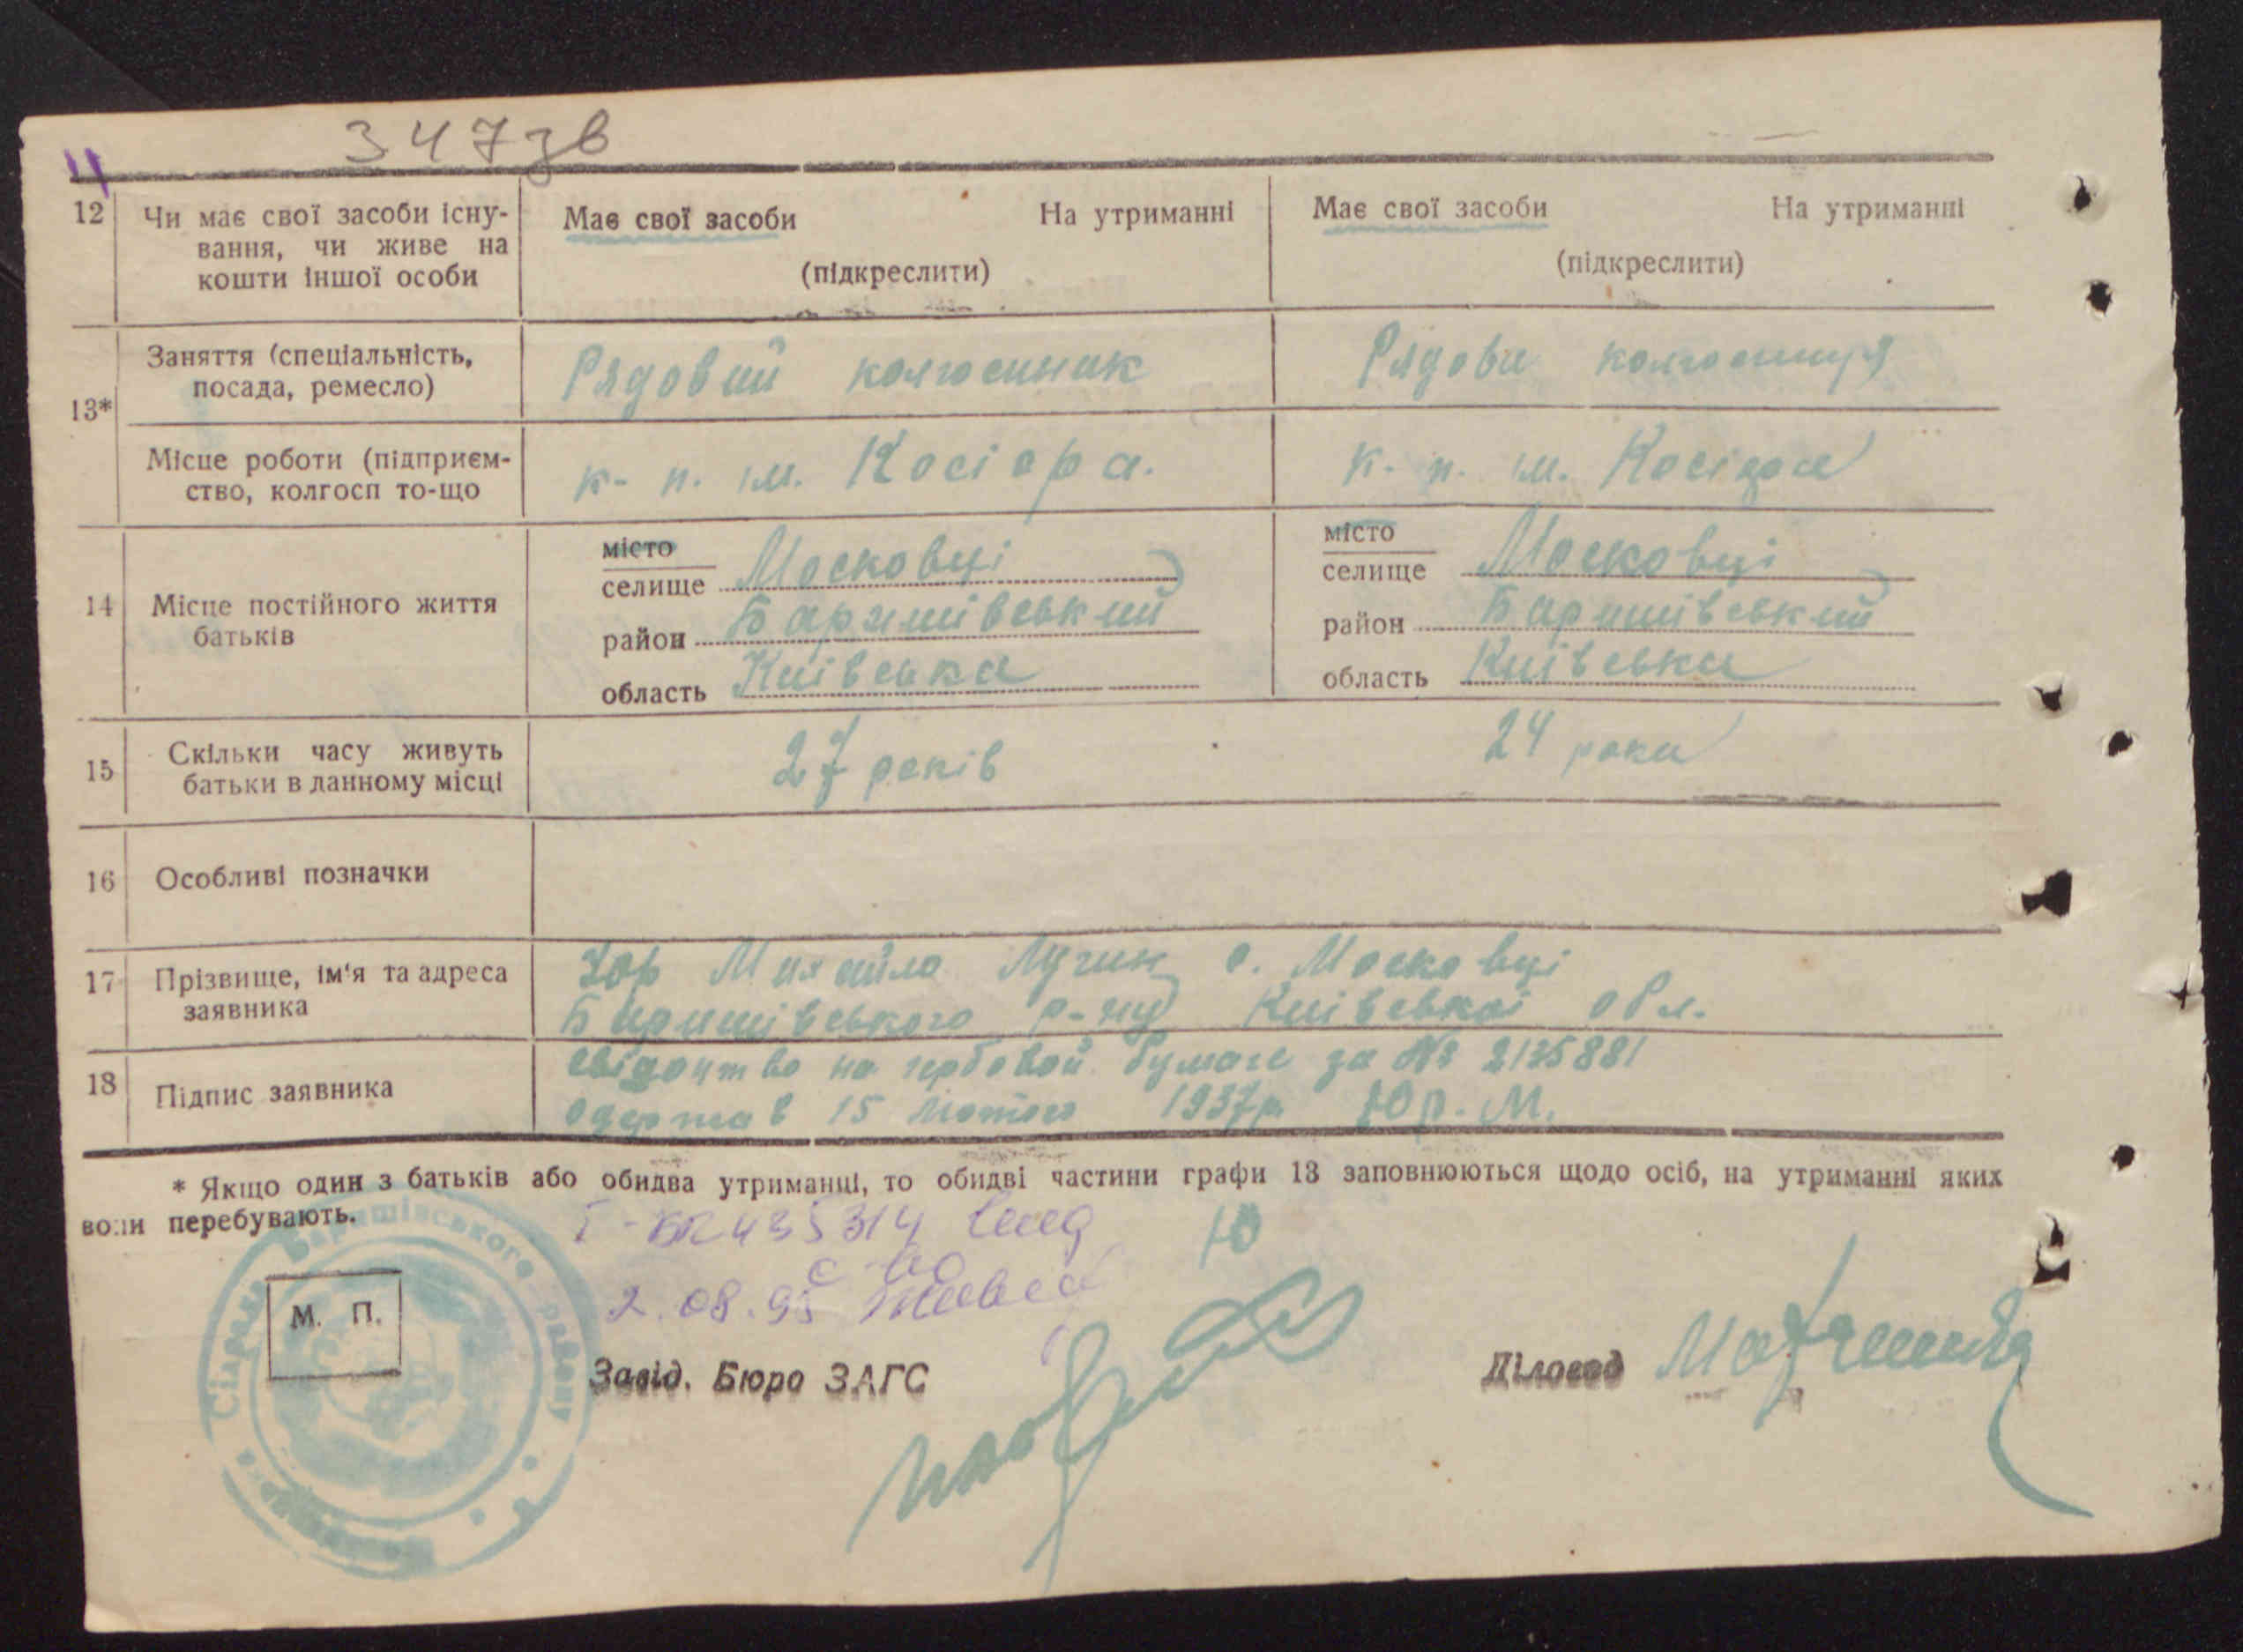 347 зв
12 Чи має свої засоби існу- Має свої засоби На утриманні Має свої засоби На утриманні
вання, чи живе на (підкреслити) (підкреслити)
кошти іншої особи
13* Заняття (спеціальність, Рядовий колгоспник Рядова колгоспниця
посада, ремесло)
Місце роботи (підприєм- к-п. ім. Косіора. к-п. ім. Косіора
ство, колгосп то-що
14 Місце постійного життя батьків
місто
селище Московці
район Баришівський
область Київська
місто
селище Московці
район Баришівський
область Київська
15 Скільки часу живуть 27 років 24 роки
батьки в данному місці
16 Особливі позначки
17 Прізвище, ім'я та адреса Юр Михайло с. Московці
заявника Баришівського р-ну Київської обл.
18 Підпис заявника свідоцтво на гербовой бумаге за № 2135881
одержав 15 лютого 1937р Юр. М.
* Якщо один з батьків або обидва утриманці, то обидві частини графи 13 заповнюються щодо осіб, на утриманні яких
вони перебувають.
435314
2.08.95
Ю
М. П.
Баришівського району
Завід. Бюро ЗАГС
Діловод